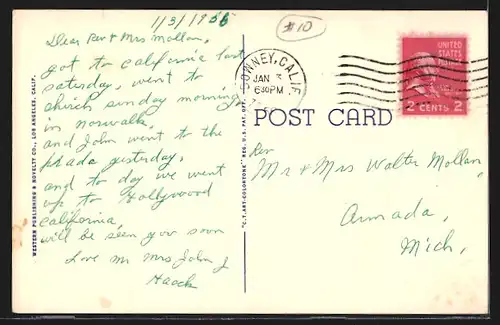 1/3/1956
#10
Dear Rev & Mrs Mollan,
got to california last
saturday, went to
chirch sunday morning
in norwalk,
and John went to the
prade yesturday,
and to day we went
up to Hollywood
california,
will be seen you soon
Love Mr Mrs John J
Haack
DOWNEY, CALIF.
JAN 3
630PM
UNITED
STATES
2 CENTS 2
POST CARD
Rev
Mr & Mrs Walter Mollan
Armada,
Mich,
WESTERN PUBLISHING & NOVELTY CO., LOS ANGELES, CALIF.
"C.T. ART-COLORTONE" REG. U.S. PAT. OFF.